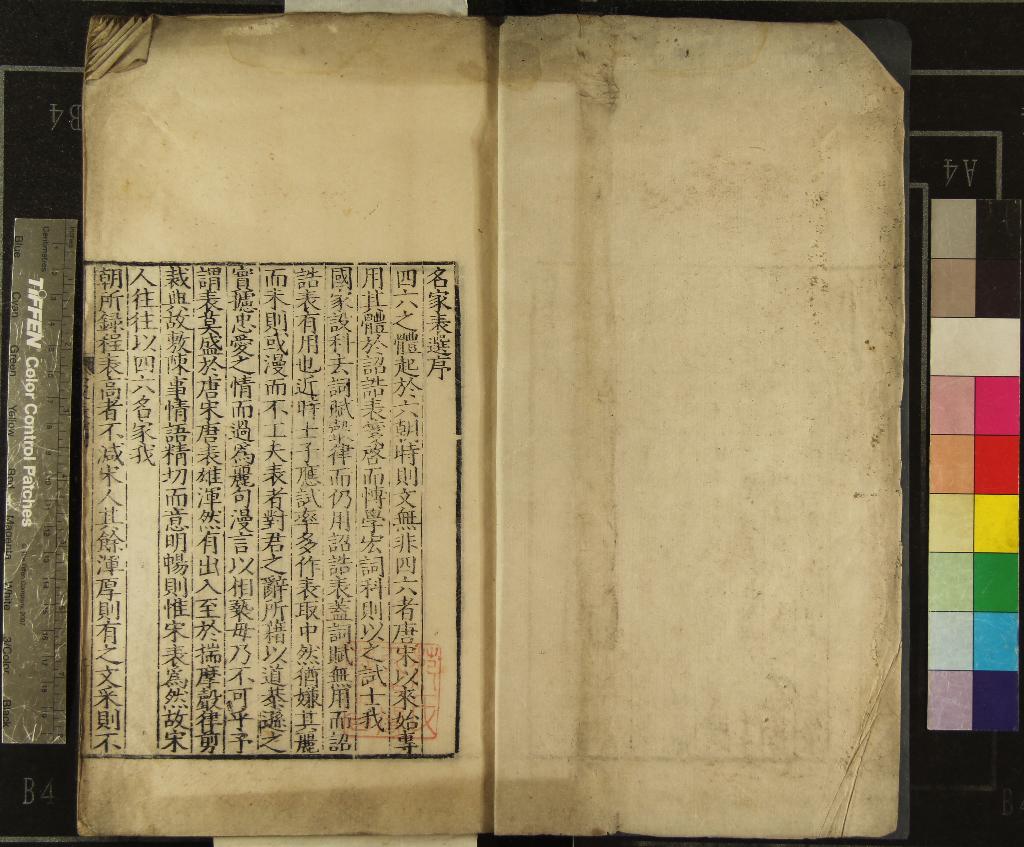 名家表選序
四六之體起於六朝時則文無非四六者唐宋以來始專
用其體於詔誥表箋啓而博學宏詞科則以之試士我
國家設科去詞賦聲律而仍用詔誥表蓋詞賦無用而詔
誥表有用也近時士子應試率多作表取中然猶嫌其麗
而未則或漫而不工夫表者對君之辭所藉以道恭遜之
實攄忠愛之情而過為麗句漫言以相褻毋乃不可乎予
謂表莫盛於唐宋唐表雄渾然有出入至於揣摩聲律剪
裁典故敷陳事情語精切而意明暢則惟宋表為然故宋
人往往以四六名家我
朝所錄程表高者不減宋人其餘渾厚則有之文采則不
B4
A4
B4
B4
TIFFEN Color Control Patches
Centimetres
Blue
Cyan
Green
Yellow
Red
Magenta
White
3/Color
Black